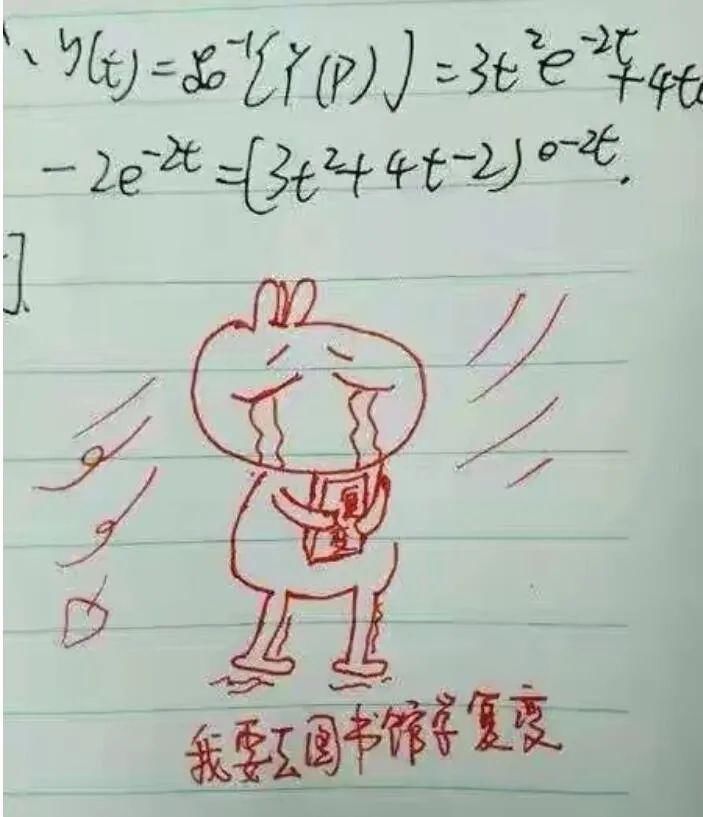 ∴ y(t) = ℒ⁻¹[Y(P)] = 3t²e⁻²ᵗ + 4t
- 2e⁻²ᵗ = (3t² + 4t - 2) e⁻²ᵗ.
].
复
变
我要去图书馆学复变